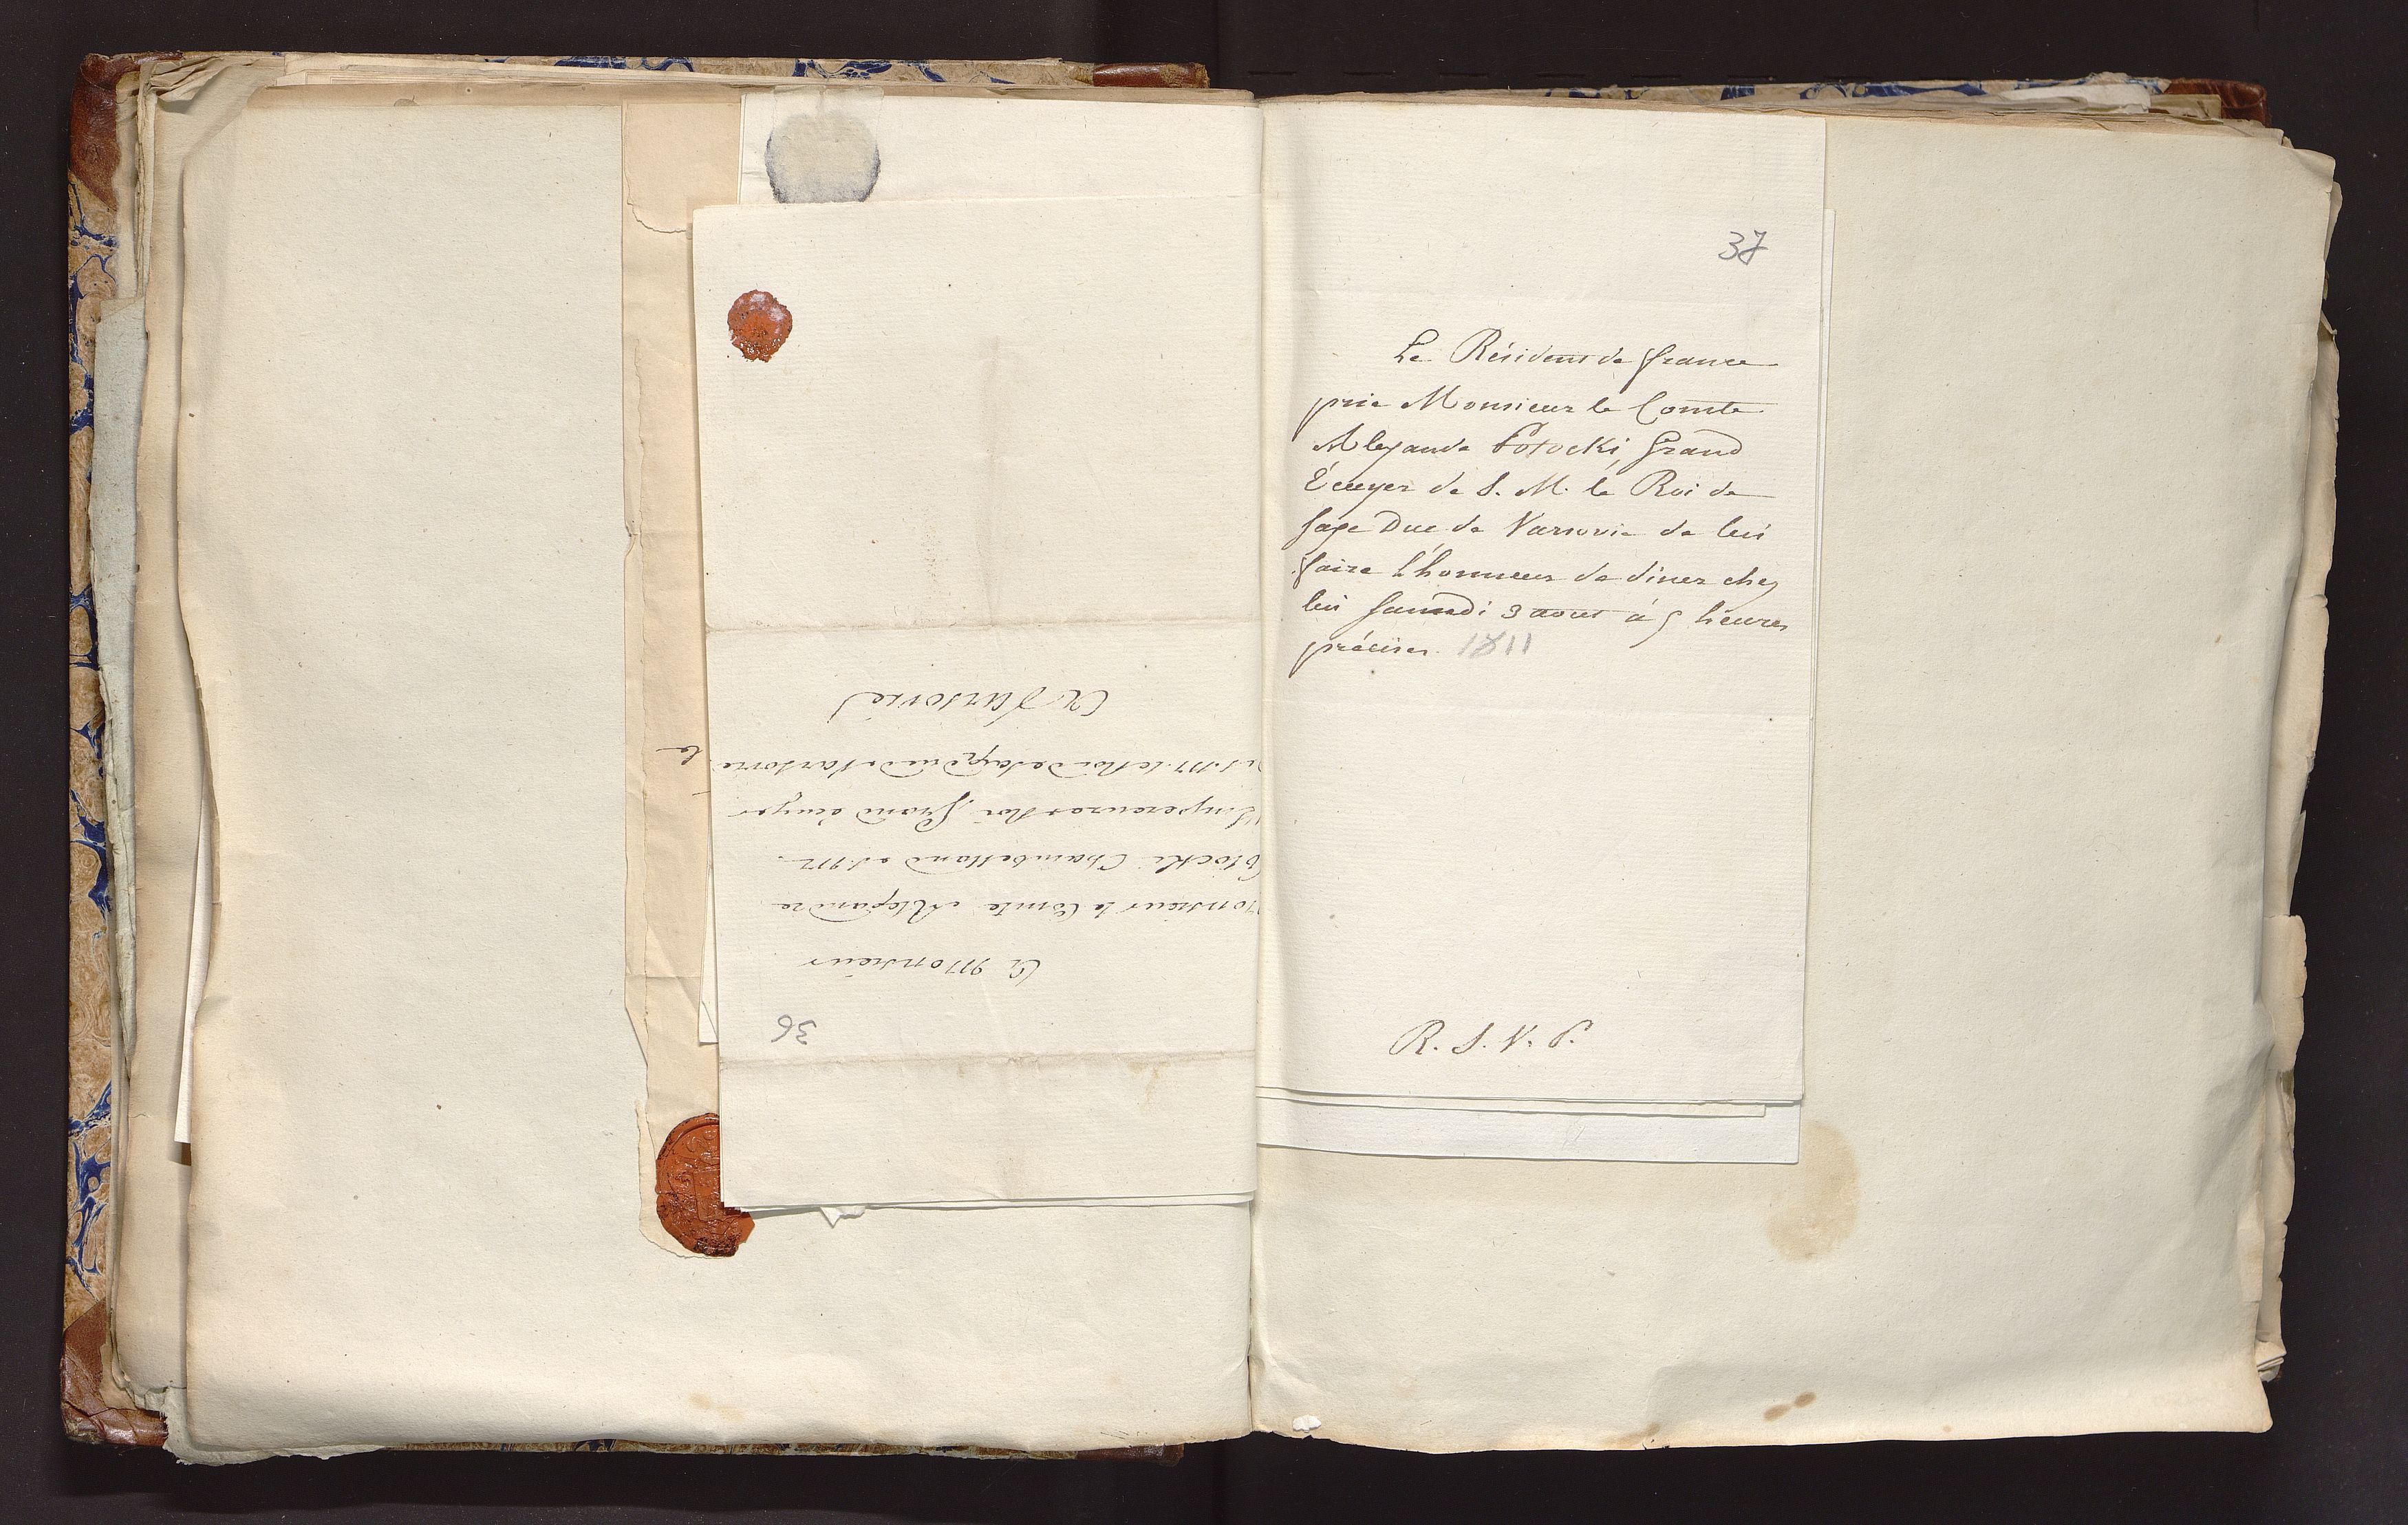 36
A Monsieur
Monsieur le Comte Alexandre
Potocki Chambellan d. S. M.
l'Empereur et Roi, grand écuyer
de S. M. le Roi de Saxe duc de Varsovie
A Varsovie
le
37
Le Résident de france
prie Monsieur le Comte
Alexandre Potocki, Grand
Écuyer de S. M. le Roi de
Saxe Duc de Varsovie de lui
faire l'honneur de diner chez
lui Samedi 3 aout à 5 heures
précises. 1811
R. S. V. P.